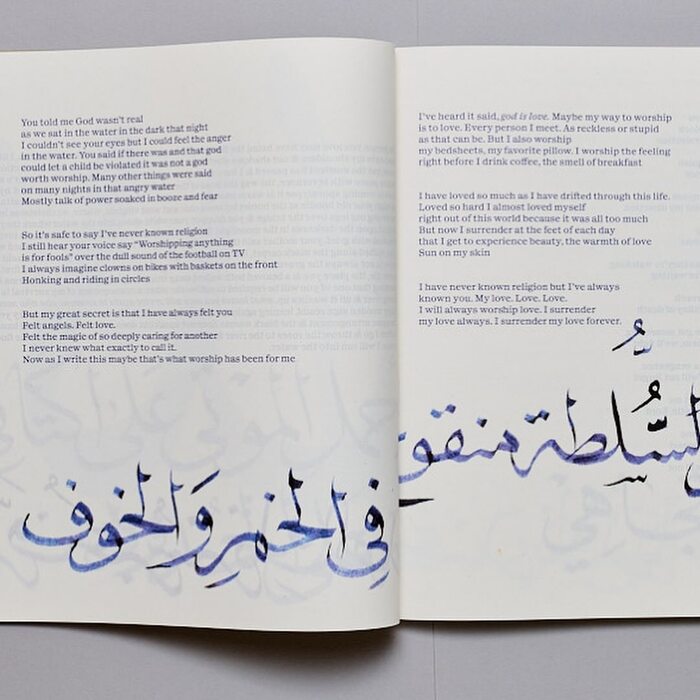 You told me God wasn't real
as we sat in the water in the dark that night
I couldn't see your eyes but I could feel the anger
in the water. You said if there was and that god
could let a child be violated it was not a god
worth worship. Many other things were said
on many nights in that angry water
Mostly talk of power soaked in booze and fear
So it's safe to say I've never known religion
I still hear your voice say “Worshipping anything
is for fools” over the dull sound of the football on TV
I always imagine clowns on bikes with baskets on the front
Honking and riding in circles
But my great secret is that I have always felt you
Felt angels. Felt love.
Felt the magic of so deeply caring for another
I never knew what exactly to call it.
Now as I write this maybe that's what worship has been for me
في الخمرِ وَالخوف
I've heard it said, god is love. Maybe my way to worship
is to love. Every person I meet. As reckless or stupid
as that can be. But I also worship
my bedsheets, my favorite pillow. I worship the feeling
right before I drink coffee, the smell of breakfast
I have loved so much as I have drifted through this life.
Loved so hard I almost loved myself
right out of this world because it was all too much
But now I surrender at the feet of each day
that I get to experience beauty, the warmth of love
Sun on my skin
I have never known religion but I've always
known you. My love. Love. Love.
I will always worship love. I surrender
my love always. I surrender my love forever.
لسُّلطة منقو